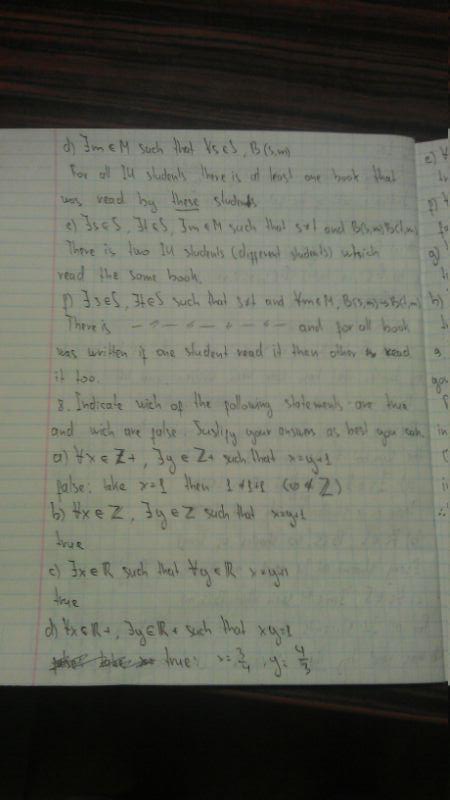 d) ∃m ∈ M such that ∀s∈S, B(s,m)
For all IU students there is at least one book that
was read by these students
e) ∃s∈S, ∃t∈S, ∃m∈M such that s≠t and B(s,m) B(t,m)
There is two IU students (different students) which
read the same book.
f) ∃s∈S, ∃t∈S such that s≠t and ∀m∈M, B(s,m)→B(t,m)
There is and for all book
was written if one student read it then other read
it too.
8. Indicate wich of the following statements are true
and wich are false. Justify your answers as best you can.
a) ∀x ∈ Z+, ∃y ∈ Z+ such that x=y+1
false: take x=1 then 1≠1+1
b) ∀x ∈ Z, ∃y ∈ Z such that x=y+1
true
c) ∃x∈R such that ∀y∈R x=y+1
true
d) ∀x∈R+, ∃y∈R+ such that xy=1
true: x=3/4, y=4/3
e) ∀
f)
g)
h)
9.